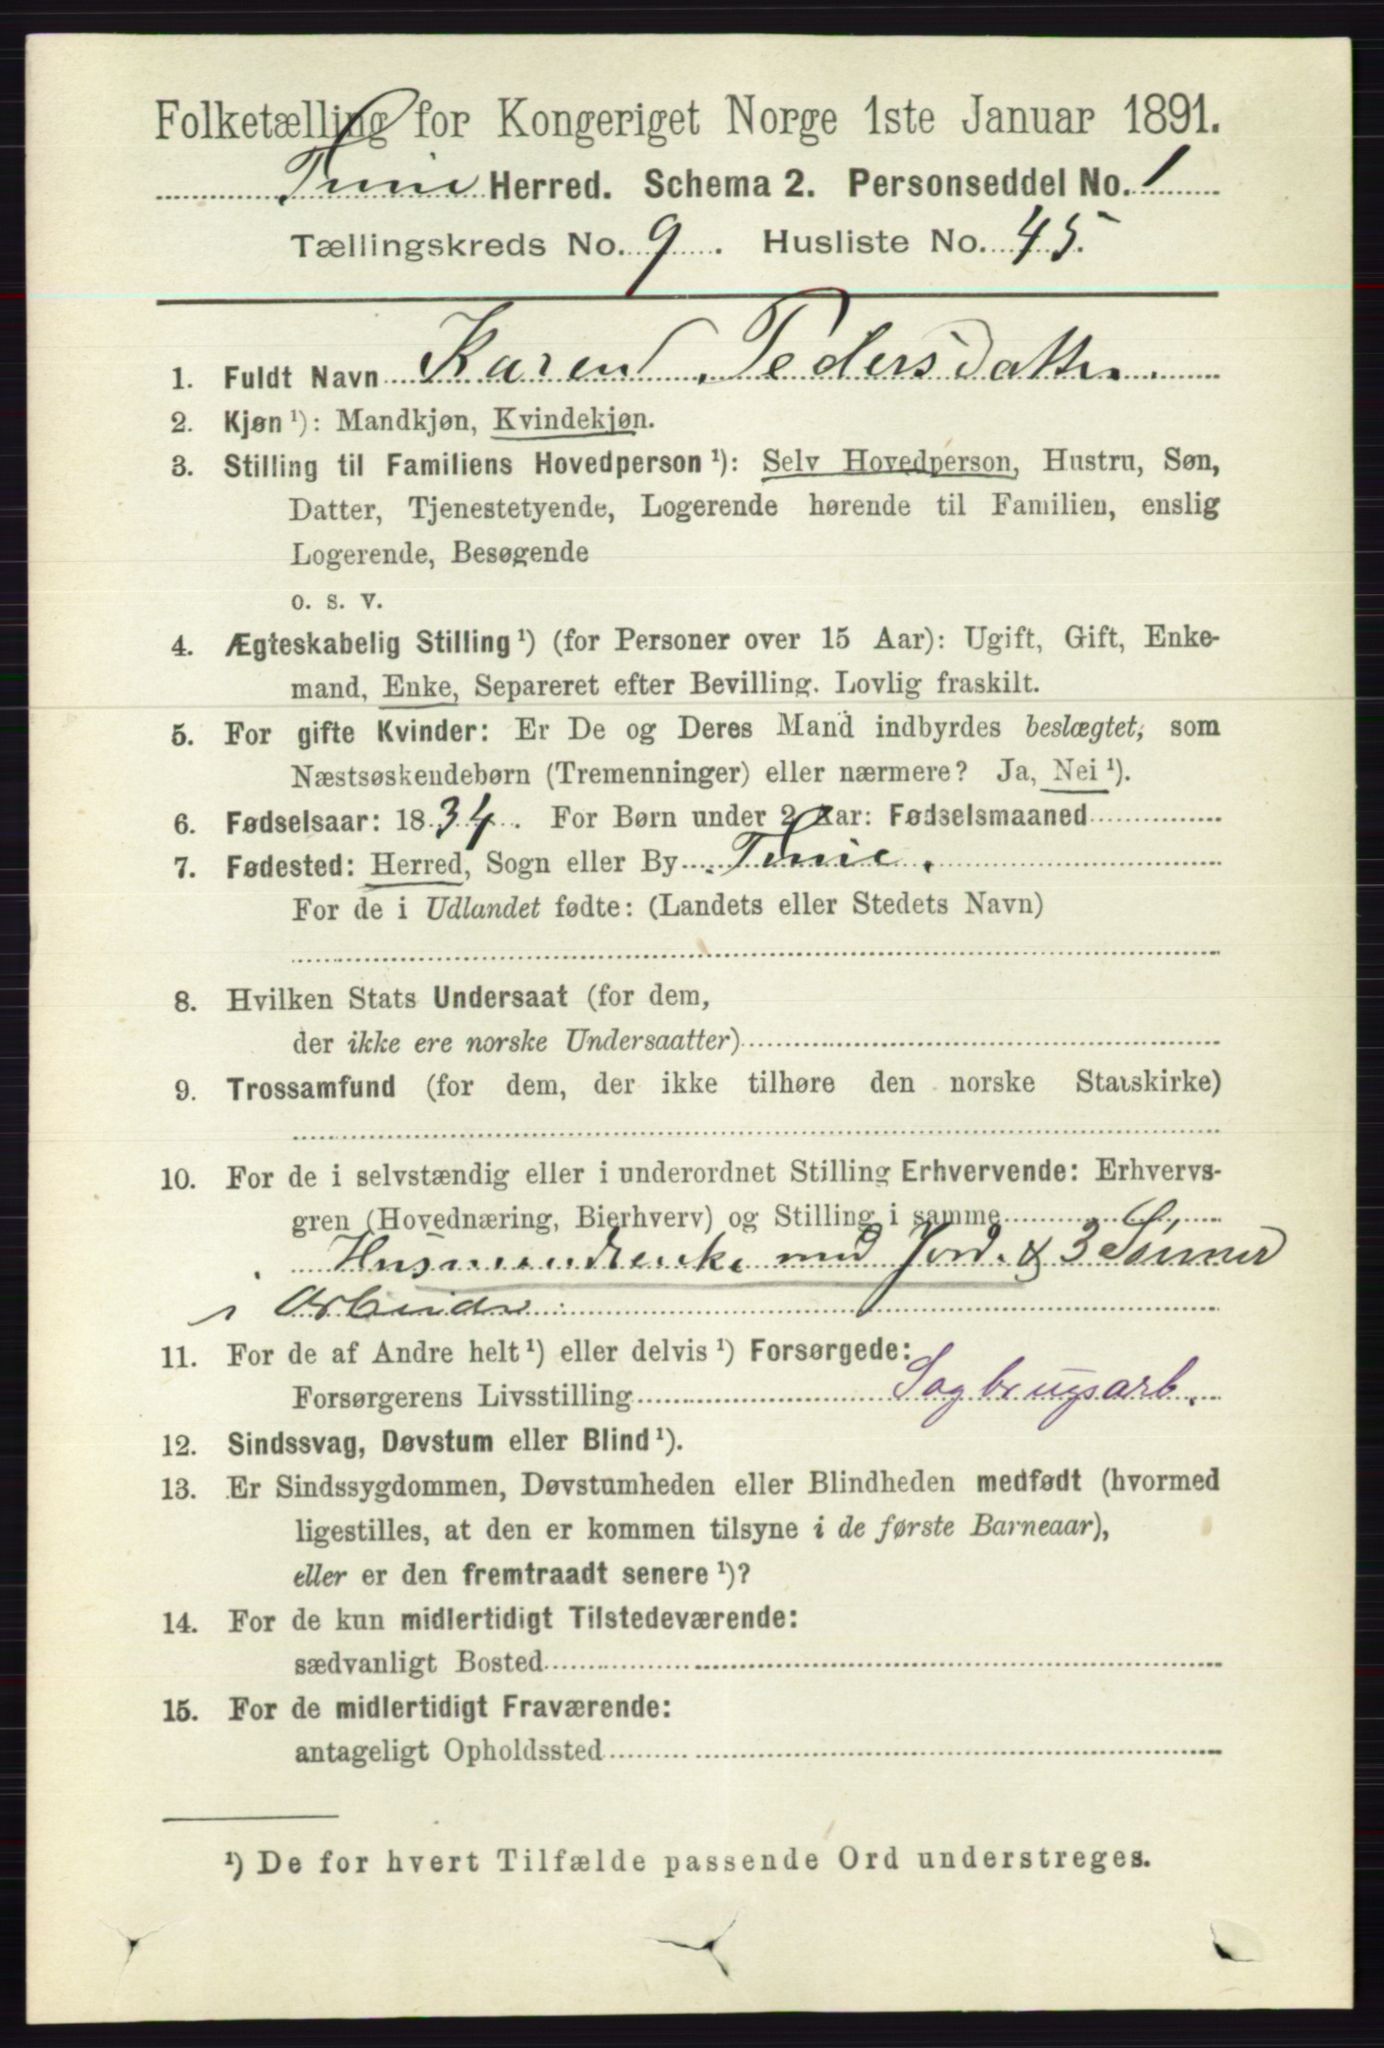 Folketælling for Kongeriget Norge 1ste Januar 1891.
Tune Herred. Schema 2. Personseddel No. 1
Tællingskreds No. 9. Husliste No. 45.
1. Fuldt Navn Karen Pedersdatter.
2. Kjøn ¹): Mandkjøn, Kvindekjøn.
3. Stilling til Familiens Hovedperson ¹): Selv Hovedperson, Hustru, Søn,
Datter, Tjenestetyende, Logerende hørende til Familien, enslig
Logerende, Besøgende
o. s. v.
4. Ægteskabelig Stilling ¹) (for Personer over 15 Aar): Ugift, Gift, Enke-
mand, Enke, Separeret efter Bevilling. Lovlig fraskilt.
5. For gifte Kvinder: Er De og Deres Mand indbyrdes beslægtet, som
Næstsøskendebørn (Tremenninger) eller nærmere? Ja, Nei ¹).
6. Fødselsaar: 1834. For Børn under 2 Aar: Fødselsmaaned
7. Fødested: Herred, Sogn eller By Tune.
For de i Udlandet fødte: (Landets eller Stedets Navn)
8. Hvilken Stats Undersaat (for dem,
der ikke ere norske Undersaatter)
9. Trossamfund (for dem, der ikke tilhøre den norske Statskirke)
10. For de i selvstændig eller i underordnet Stilling Erhvervende: Erhvervs-
gren (Hovednæring, Bierhverv) og Stilling i samme
Husmandsenke med Jord. & 3 Sønner
i Arbeide
11. For de af Andre helt ¹) eller delvis ¹) Forsørgede:
Forsørgerens Livsstilling Sagbrugsarb.
12. Sindssvag, Døvstum eller Blind ¹).
13. Er Sindssygdommen, Døvstumheden eller Blindheden medfødt (hvormed
ligestilles, at den er kommen tilsyne i de første Barneaar),
eller er den fremtraadt senere ¹)?
14. For de kun midlertidigt Tilstedeværende:
sædvanligt Bosted
15. For de midlertidigt Fraværende:
antageligt Opholdssted
¹) De for hvert Tilfælde passende Ord understreges.